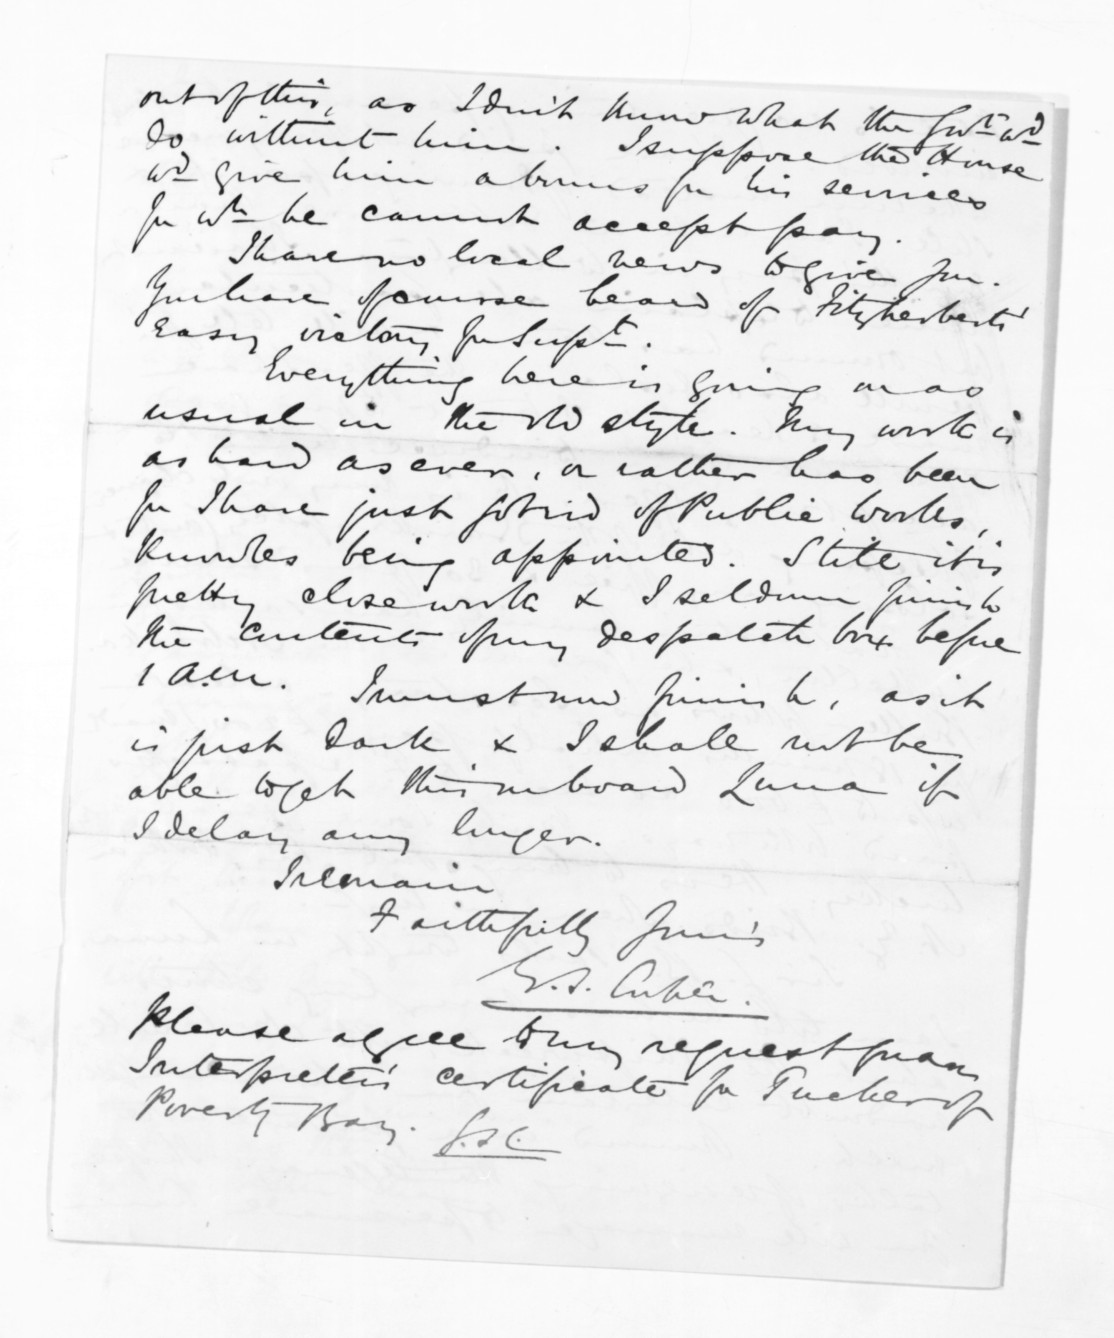 out of this, as I don't know what the Govt wd
do without him. I suppose the House
wd give him a bonus for his services
for wh he cannot accept pay.
I have no local news to give you.
You have of course heard of Fitzherbert's
easy victory for Supt.
Everything here is going on as
usual in the old style. My work is
as hard as ever, or rather has been
for I have just got rid of Public Works,
Knowles being appointed. Still it is
pretty close work & I seldom finish
the contents of my despatch box before
1 a.m. I must now finish, as it
is just dark & I shall not be
able to get this on board Luna if
I delay any longer.
I remain
Faithfully Yours
G. S. Cooper.
Please agree to my request for an
Interpreter's certificate for Tucker of
Poverty Bay. G.S.C.